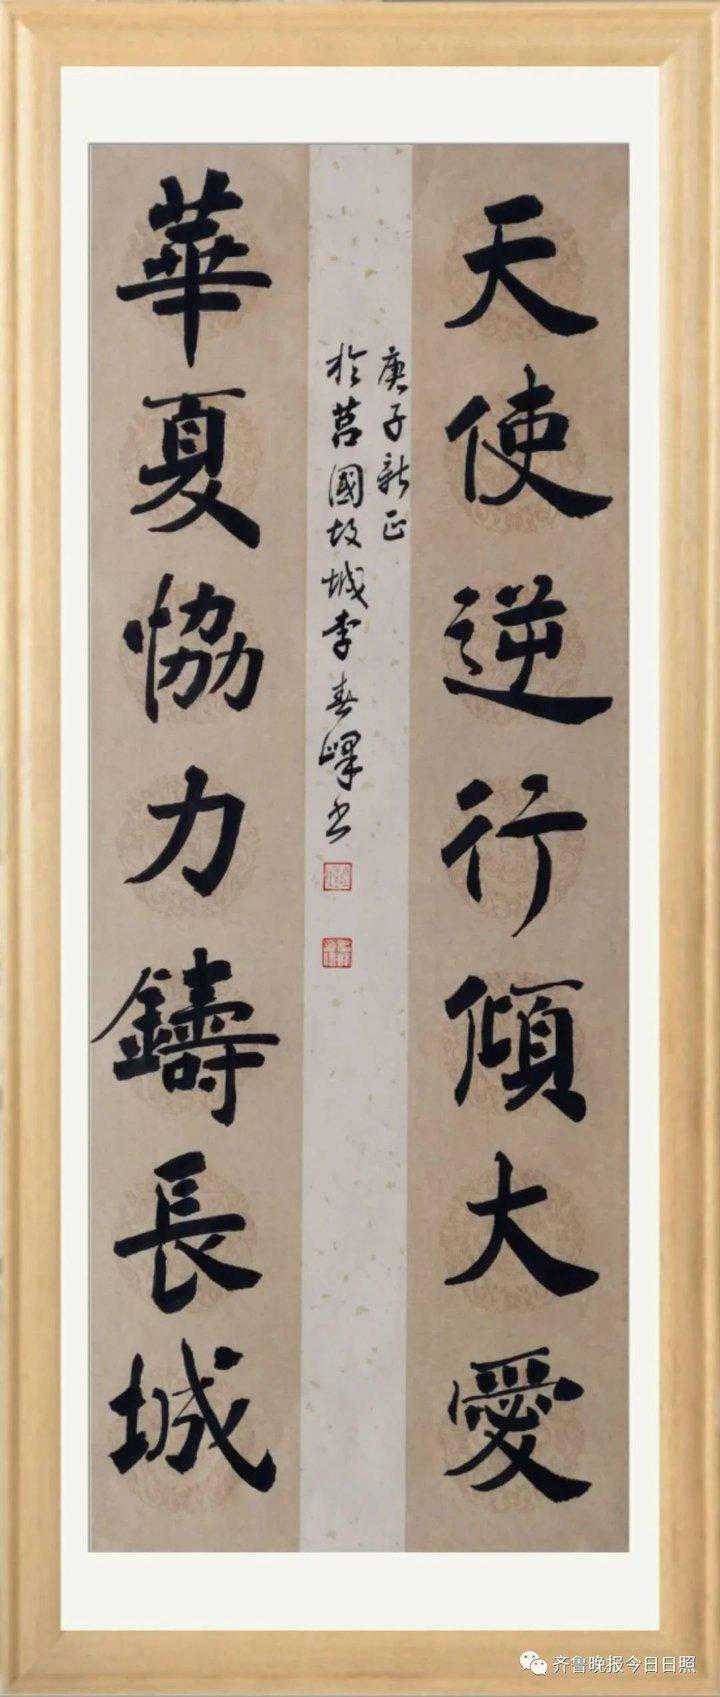 天使逆行傾大愛
華夏恊力鑄長城
庚子新正
於莒國故城李春峄书
齐鲁晚报今日日照